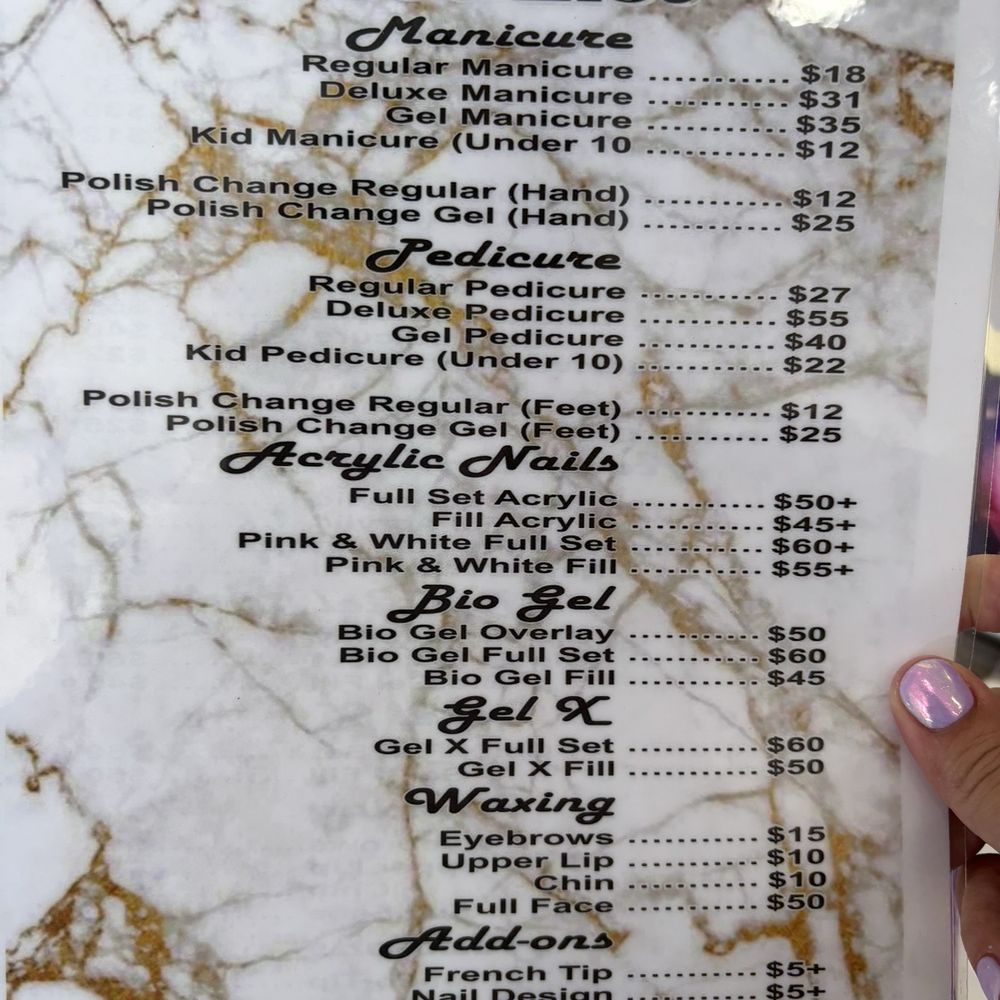 Manicure
Regular Manicure ............ $18
Deluxe Manicure ............ $31
Gel Manicure ............ $35
Kid Manicure (Under 10 ............ $12
Polish Change Regular (Hand) ............ $12
Polish Change Gel (Hand) ............ $25
Pedicure
Regular Pedicure ............ $27
Deluxe Pedicure ............ $55
Gel Pedicure ............ $40
Kid Pedicure (Under 10) ............ $22
Polish Change Regular (Feet) ............ $12
Polish Change Gel (Feet) ............ $25
Acrylic Nails
Full Set Acrylic ............ $50+
Fill Acrylic ............ $45+
Pink & White Full Set ............ $60+
Pink & White Fill ............ $55+
Bio Gel
Bio Gel Overlay ............ $50
Bio Gel Full Set ............ $60
Bio Gel Fill ............ $45
Gel X
Gel X Full Set ............ $60
Gel X Fill ............ $50
Waxing
Eyebrows ............ $15
Upper Lip ............ $10
Chin ............ $10
Full Face ............ $50
Add-ons
French Tip ............ $5+
Nail Design ............ $5+